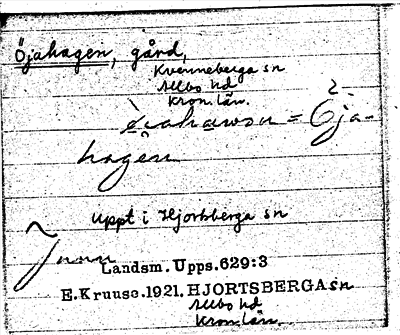 Öjahagen, gård,
Kvenneberga sn
Allbo hd
Kron. län.
= Öja-
hagen
Uppt i Hjortsberga sn
Landsm. Upps. 629:3
E. Kruuse. 1921. HJORTSBERGA sn
Allbo hd
Kron. län.